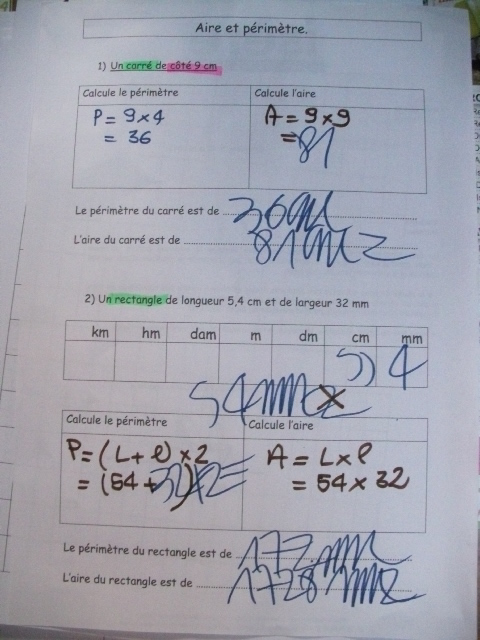 Aire et périmètre.
1) Un carré de côté 9 cm
Calcule le périmètre
P = 9 x 4
= 36
Calcule l'aire
A = 9 x 9
= 81
Le périmètre du carré est de 36cm
L'aire du carré est de 81cm2
2) Un rectangle de longueur 5,4 cm et de largeur 32 mm
km hm dam m dm cm mm
5, 4
54mm
Calcule le périmètre
P = (L + l) x 2
= (54 + 32) x 2 =
Calcule l'aire
A = L x l
= 54 x 32
Le périmètre du rectangle est de 172mm
L'aire du rectangle est de 1728mm2